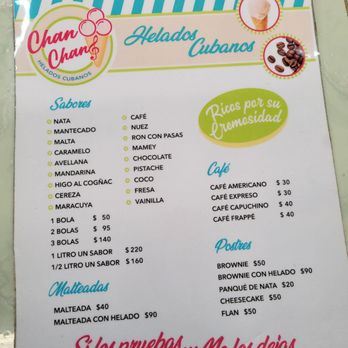 Chan
Chan
HELADOS CUBANOS
Helados
Cubanos
Sabores
NATA
MANTECADO
MALTA
CARAMELO
AVELLANA
MANDARINA
HIGO AL COGÑAC
CEREZA
MARACUYA
CAFÉ
NUEZ
RON CON PASAS
MAMEY
CHOCOLATE
PISTACHE
COCO
FRESA
VAINILLA
1 BOLA $ 50
2 BOLAS $ 95
3 BOLAS $ 140
1 LITRO UN SABOR $ 220
1/2 LITRO UN SABOR $ 160
Malteadas
MALTEADA $40
MALTEADA CON HELADO $90
Ricos por su
Cremosidad
Café
CAFÉ AMERICANO $ 30
CAFÉ EXPRESO $ 30
CAFÉ CAPUCHINO $ 40
CAFÉ FRAPPÉ $ 40
Postres
BROWNIE $50
BROWNIE CON HELADO $90
PANQUÉ DE NATA $20
CHEESECAKE $50
FLAN $50
Si los pruebas... No los dejas